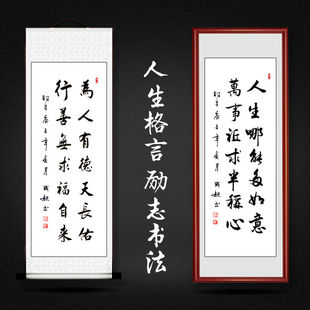 為人有德天長佑
行善無求福自来
人生格言励志书法
人生哪能多如意
萬事只求半稱心